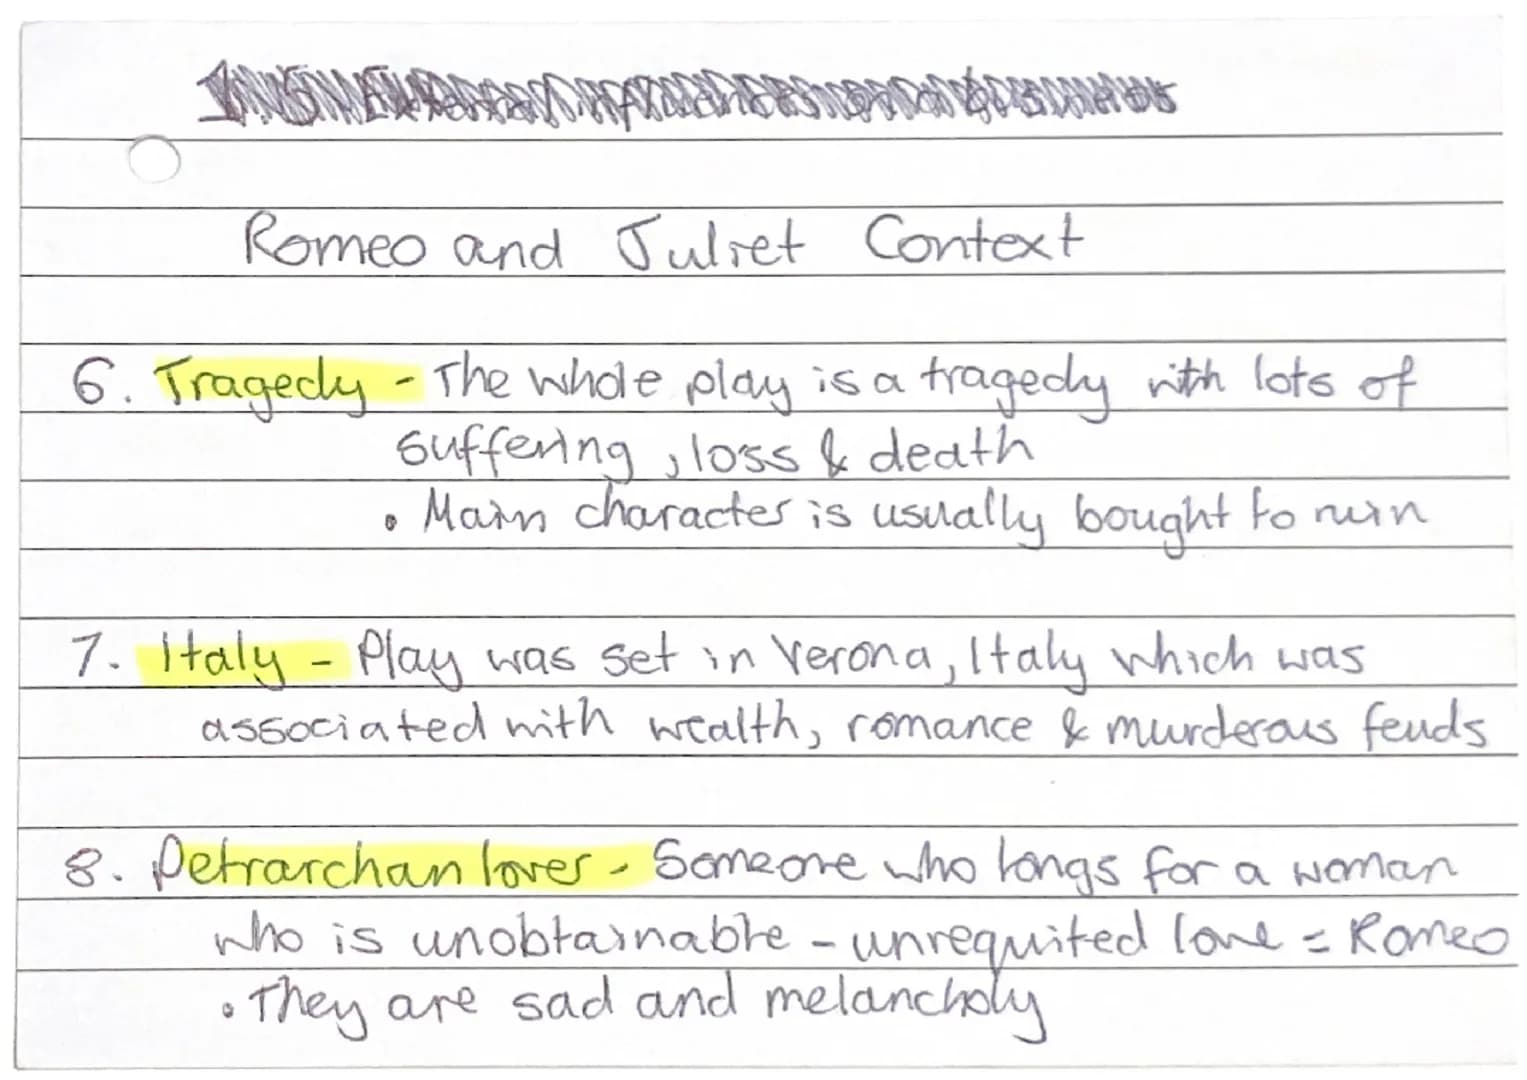 Romeo and Juliet Context
6. Tragedy - The whole play is a tragedy with lots of
suffering, loss & death
• Main character is usually bought to ruin
7. Italy - Play was set in Verona, Italy which was
associated with wealth, romance & murderous feuds
8. Petrarchan lover - Someone who longs for a woman
who is unobtainable - unrequited love = Romeo
• They are sad and melancholy